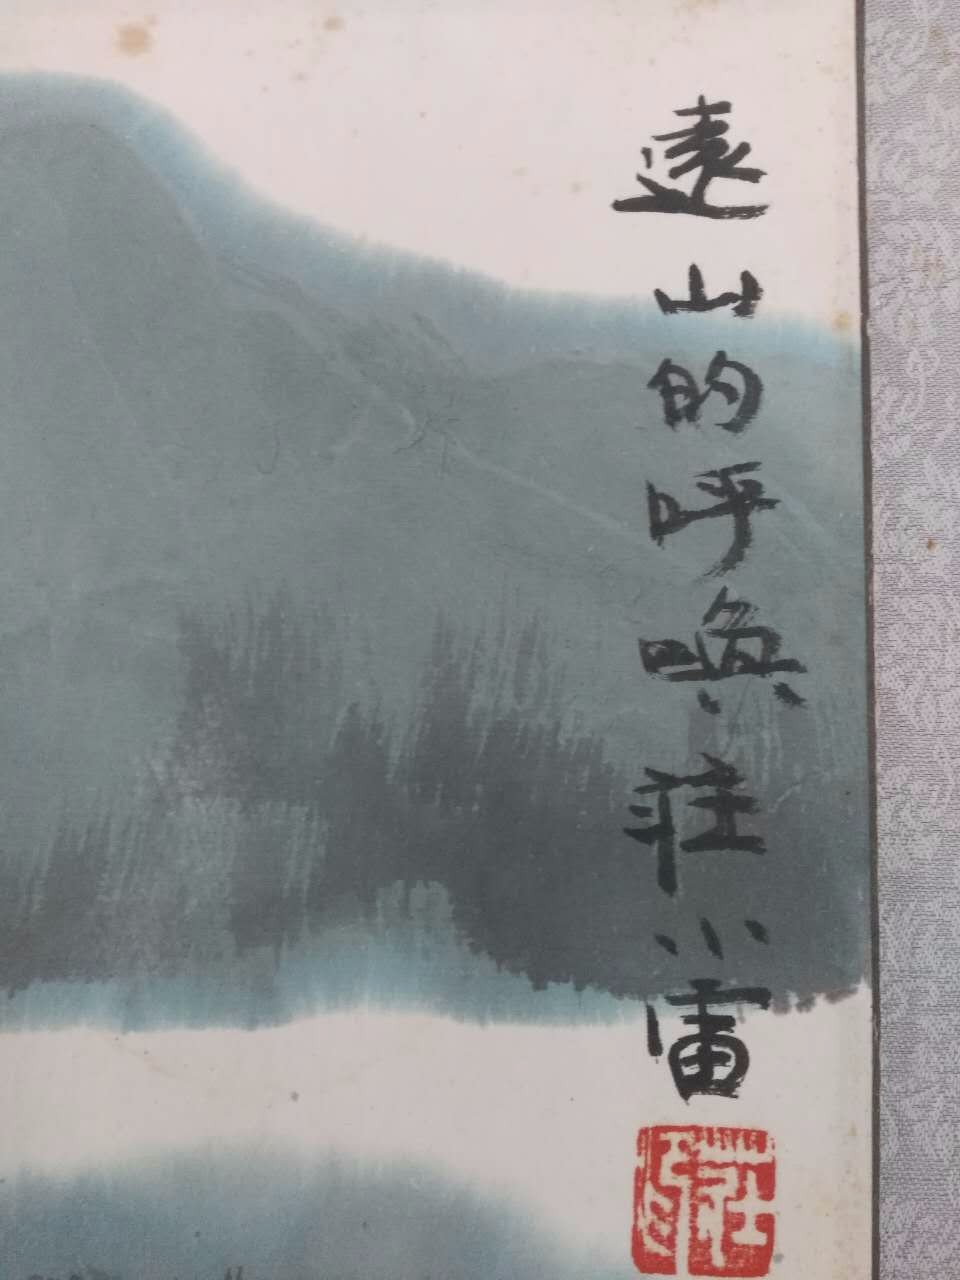 遠山的呼喚莊小雷